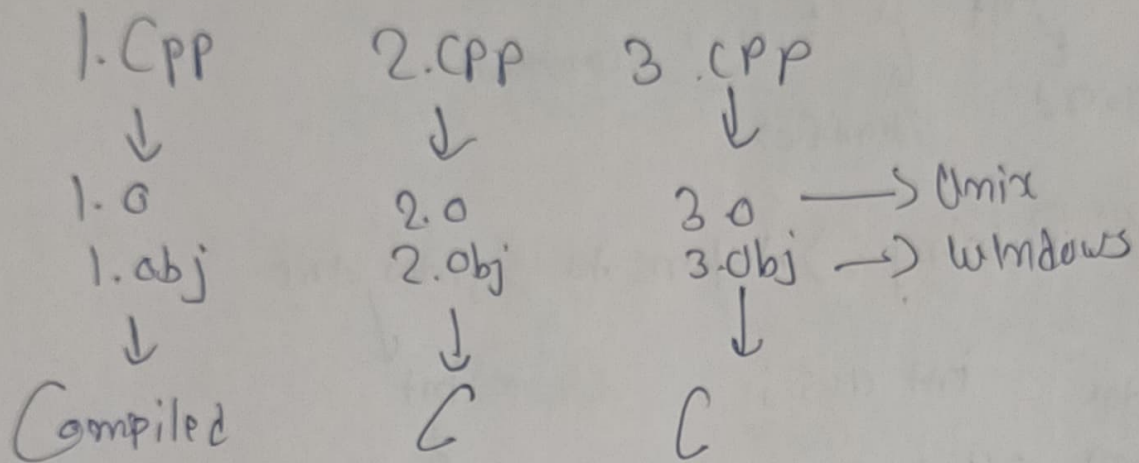 1. Cpp 2. Cpp 3 .cpp
↓ ↓ ↓
1. o 2. o 3 o → Unix
1. obj 2. Obj 3. Obj → Windows
↓ ↓ ↓
Compiled C C